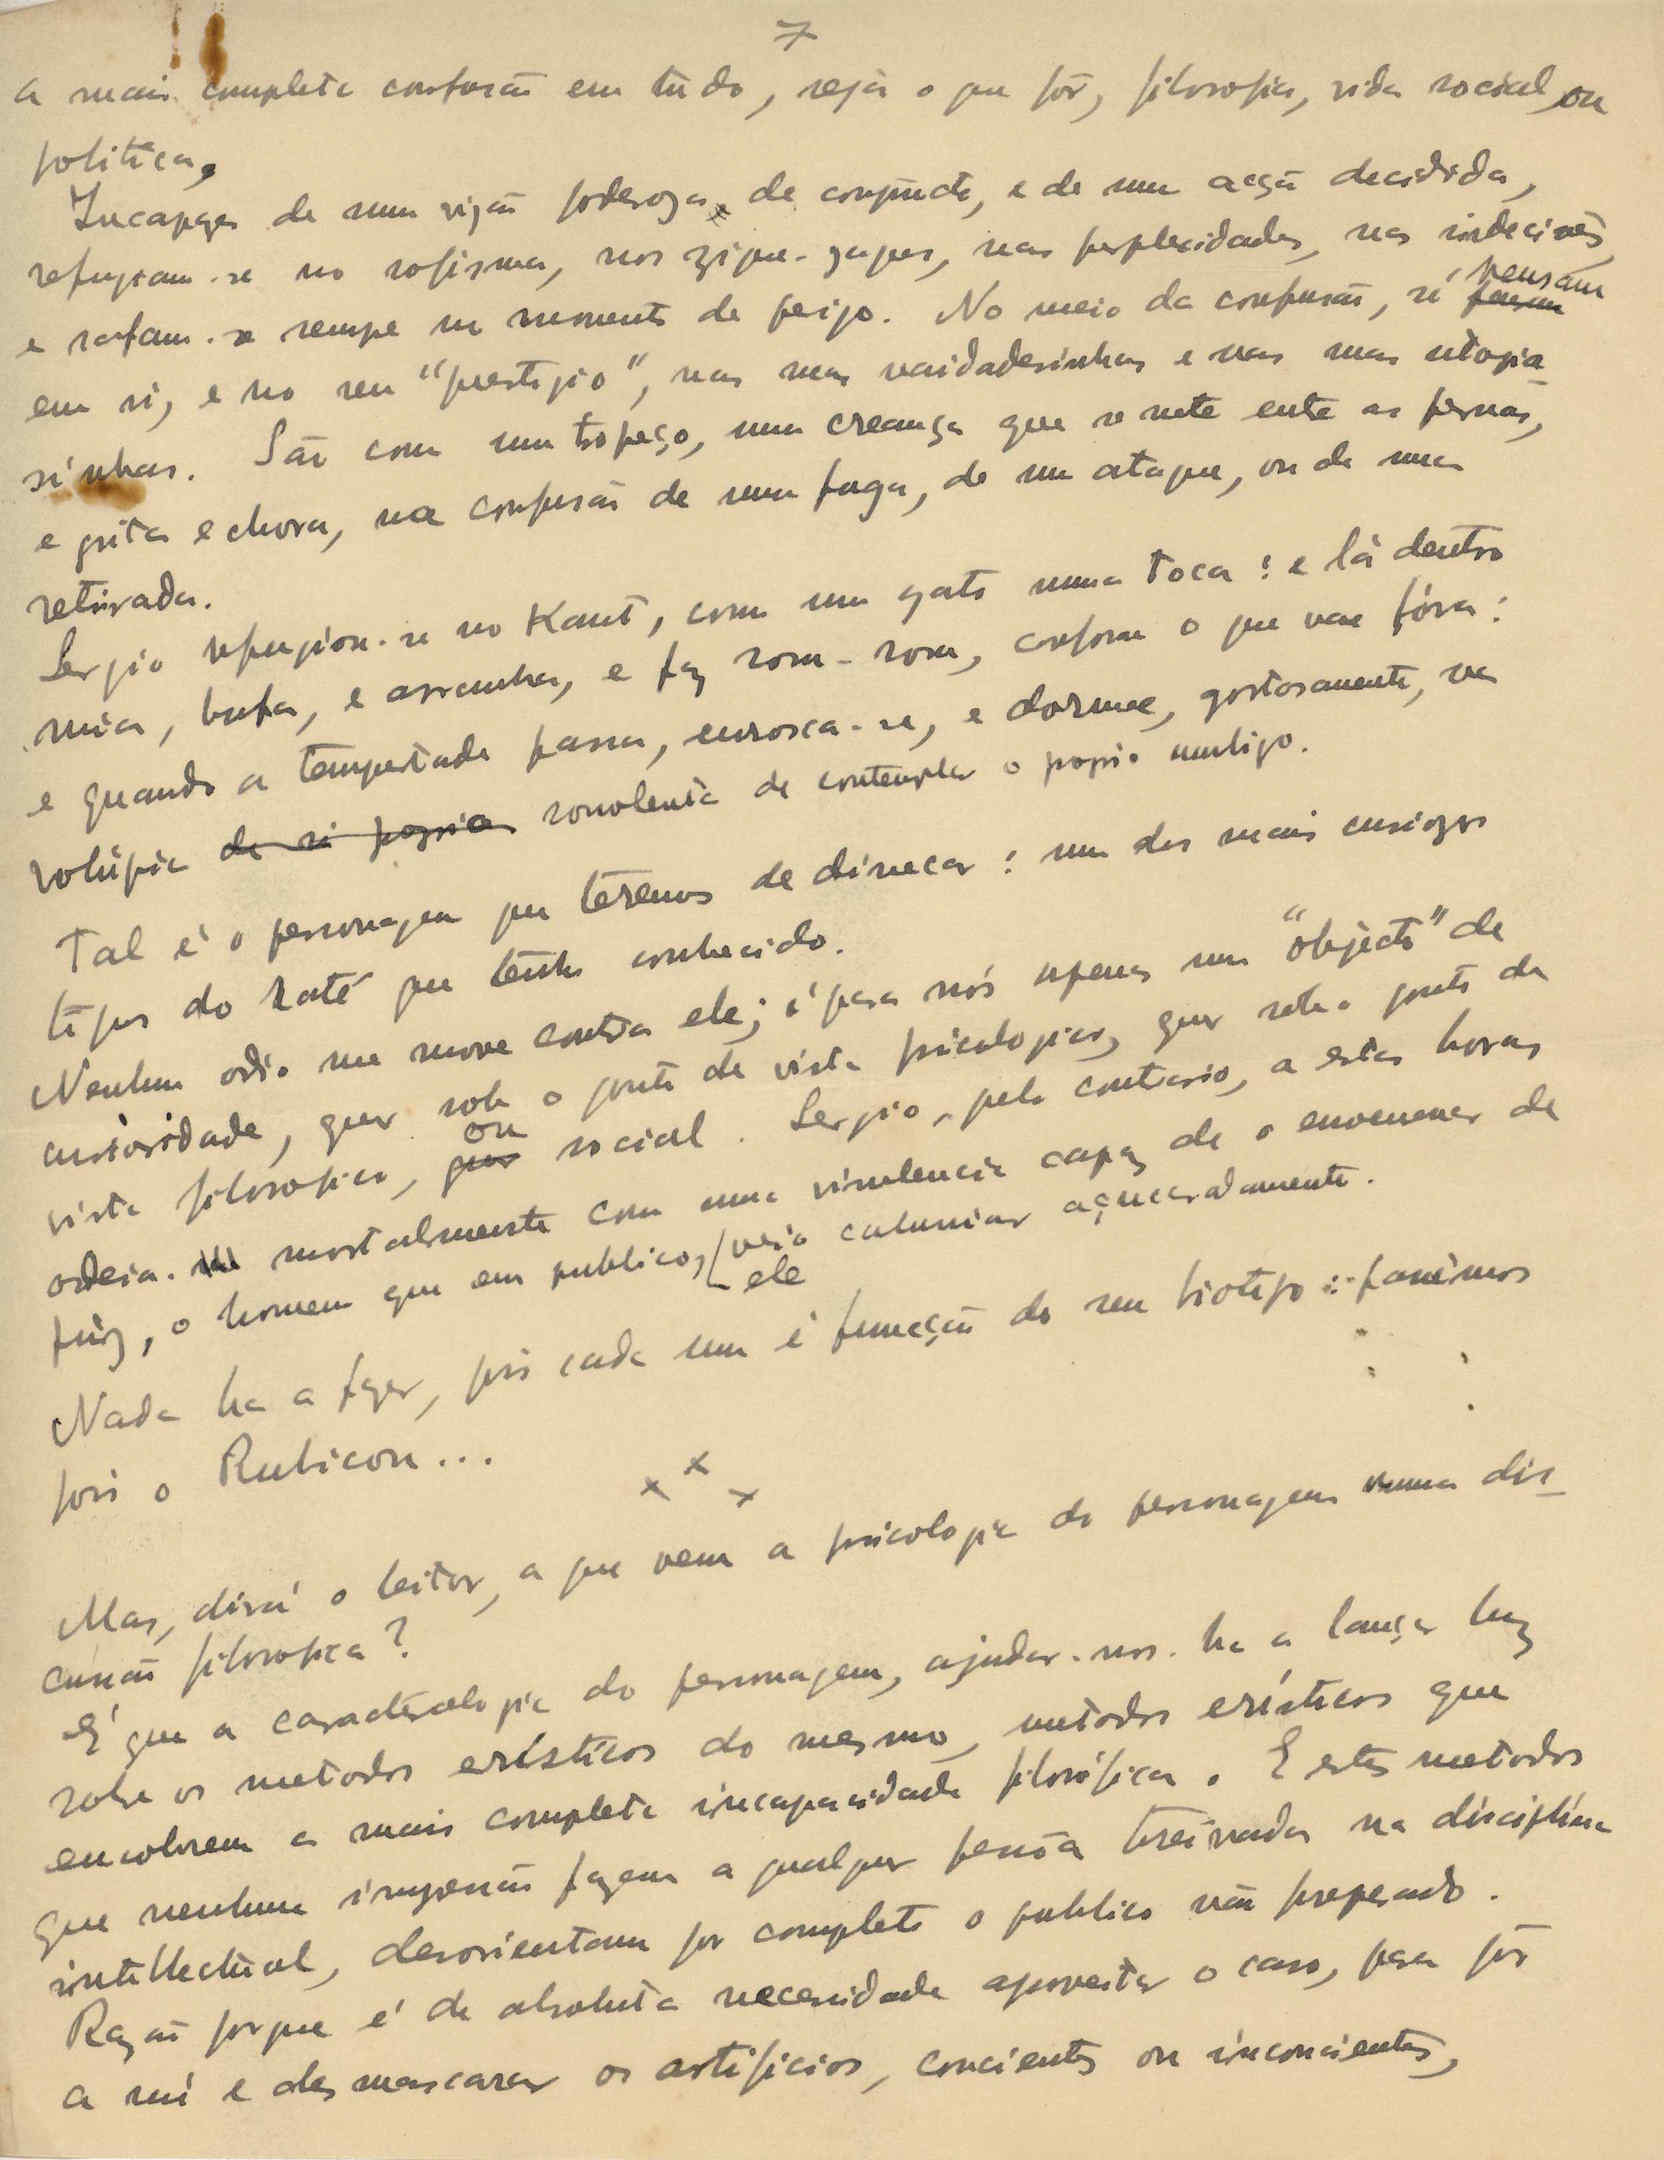 7
a mais completa confusão em tudo, seja o que fôr, filosofia, vida social, ou
politica.
Incapazes de uma vizão poderoza, de conjuncto, e de uma acção decidida,
refugiam-se no sofisma, nos zigue-zagues, nas perplexidades, nas indecisões,
e safam-se sempre no momento de perigo. No meio da confusão, só pensam
em si, e no seu "prestigio", nas suas vaidadesinhas e nas suas utopia-
sinhas. São como um tropeço, uma creança que se mete entre as pernas,
e grita e chora, na confusão de uma fuga, de um ataque, ou de uma
retirada.
Sergio refugiou-se no Kant, como um gato numa toca: e lá dentro
mia, bufa, e arranha, e faz rom-rom, conforme o que vae fóra:
e quando a tempestade passa, enrosca-se, e dorme, gostosamente, na
volúpia de si propria sonolenta de contemplar o proprio umbigo.
Tal é o personagem que teremos de dissecar: um dos mais curiozos
tipos do raté que tenho conhecido.
Nenhum odio me move contra ele; é para nós apenas um "objecto" de
curiosidade, quer sob o ponto de vista psicologico, quer sob o ponto de
vista filosofico, quer ou social. Sergio, pelo contrario, a estas horas
odeia-me mortalmente com uma virulencia capaz de o envenenar de
vez, o homem que em publico, ele veio caluniar açucaradamente.
Nada ha a fazer, pois cada um é funcção do seu biotipo: passêmos
pois o Rubicon...
x x x
Mas, dirá o leitor, a que vem a psicologia do personagem numa dis-
cussão filosofica?
É que a caracterologia do personagem, ajudar-nos-ha a lançar luz
sobre os metodos erísticos do mesmo, metodos erísticos que
encobrem a mais completa incapacidade filosófica. E estes metodos
que nenhuma impressão fazem a qualquer pessôa treinada na disciplina
intellectual, desorientam por completo o publico não preparado.
Razão porque é de absoluta necessidade aproveitar o caso, para pôr
a nú e desmascarar os artificios, concientes ou inconcientes,